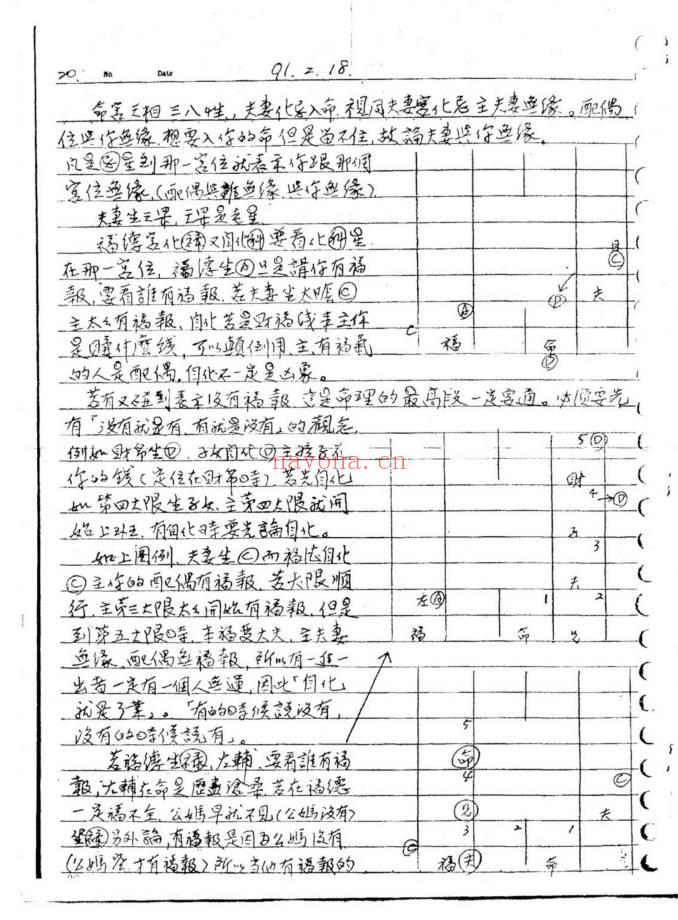 20. No. Date 91. 2. 18.
命宮三相三八牲,夫妻化忌入命,視同夫妻宮化忌主夫妻無緣。配偶
位與你無緣,想要入你的命但是留不住,故論夫妻與你無緣。
凡是忌星到那一宮位就表示你跟那個
宮位無緣。(配偶與誰無緣,與你無緣)
夫妻坐天梁,天梁是老星
福德宮化 又自化科要看化科星
在那一宮位,福德坐A只是講你有福
報,要看誰有福報,若夫妻坐太陰C
主太太有福報,自化若是財福線來主你
是賺什麼錢,可以顛倒用,主有福氣
的人是配偶,自化不一定是凶象。
若有又碰到表示沒有福報,這是命理的最高段一定要通。必須要先
有「沒有就是有,有就是沒有」的觀念。
例如財帛坐D,子女自化D主孩子花
你的錢(定位在財帛時),若先自化
如第四大限坐子女,主第四大限就開
始上班,有自化時要先論自化。
如上圖例,夫妻坐C而福德自化
C主你的配偶有福報,若大限順
行,主第三大限太太開始有福報,但是
到第五大限時,本福變大夫,主夫妻
無緣,配偶無福報,所以有一進一
出者一定有一個人無運,因此「自化
就是了業」。「有的時候說沒有,
沒有的時候說有」。
若福德坐祿,左輔,要看誰有福
報,左輔在命是歷盡滄桑,若在福德
一定福不全,公媽早就不見(公媽沒有)
另外論,有福報是因為公媽沒有
(公媽 才有福報)所以當他有福報的
C
A
D
夫
C
福
命
D
5 D
財
4 → D
3
夫
左A
1
2
福
命
兄
5
命
4
C
2
夫
3
2
1
C
福 夫
命
nayona.cn